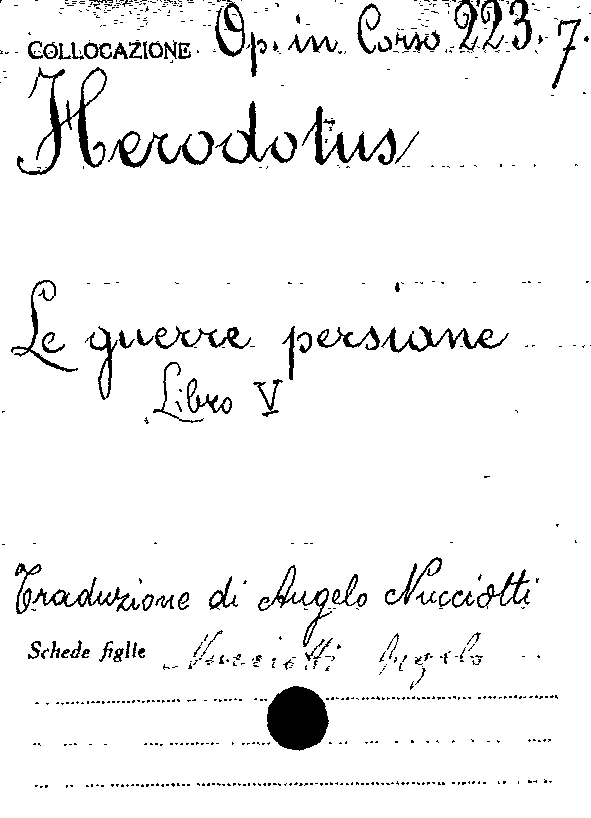 COLLOCAZIONE Op. in Corso 223.7.
Herodotus
Le guerre persiane
Libro V
Traduzione di Angelo Nucciotti
Schede figlie Nucciotti Angelo